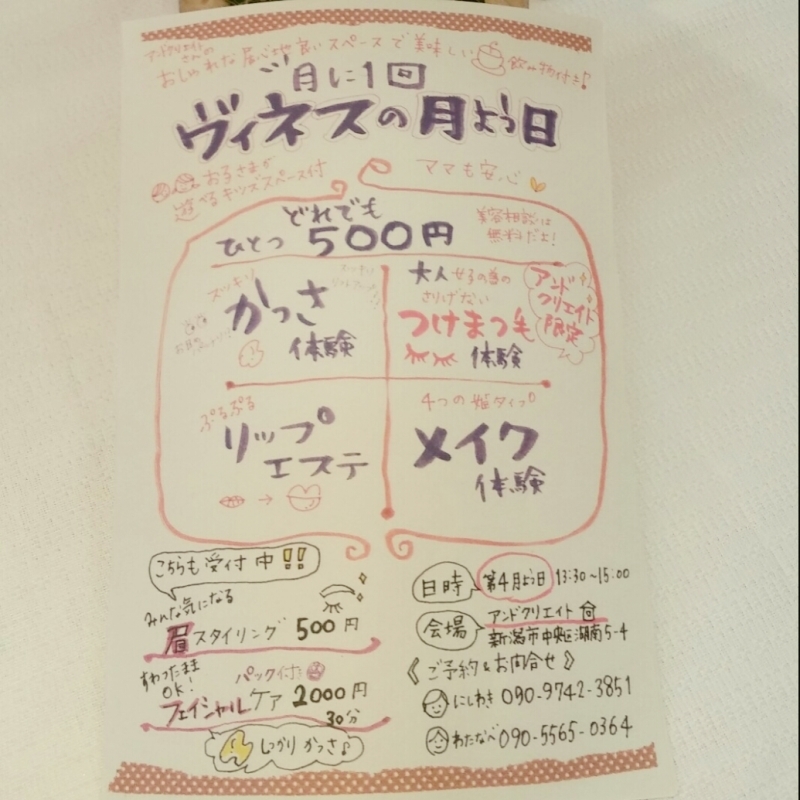 アンドクリエイト
さんの
おしゃれな居心地良いスペースで美味しい飲み物付き♪
月に1回
ヴィネスの月よう日
お子さまが
遊べるキッズスペース付
ママも安心
どれでも
ひとつ 500円
美容相談は
無料だよ!
スッキリ
かっさ
体験
大人女子の為の
さりげない
つけまつ毛
体験
アンド
クリエイト
限定
ぷるぷる
リップ
エステ
4つの姫タイプ
メイク
体験
こちらも受付中!!
みんな気になる
眉スタイリング 500円
すわったまま
OK!
パック付き
フェイシャルケア 2000円
30分
しっかりかっさ♪
日時 第4月よう日 13:30~15:00
会場 アンドクリエイト
新潟市中央区湖南5-4
《ご予約&お問合せ》
にしわき 090-9742-3851
わたなべ 090-5565-0364